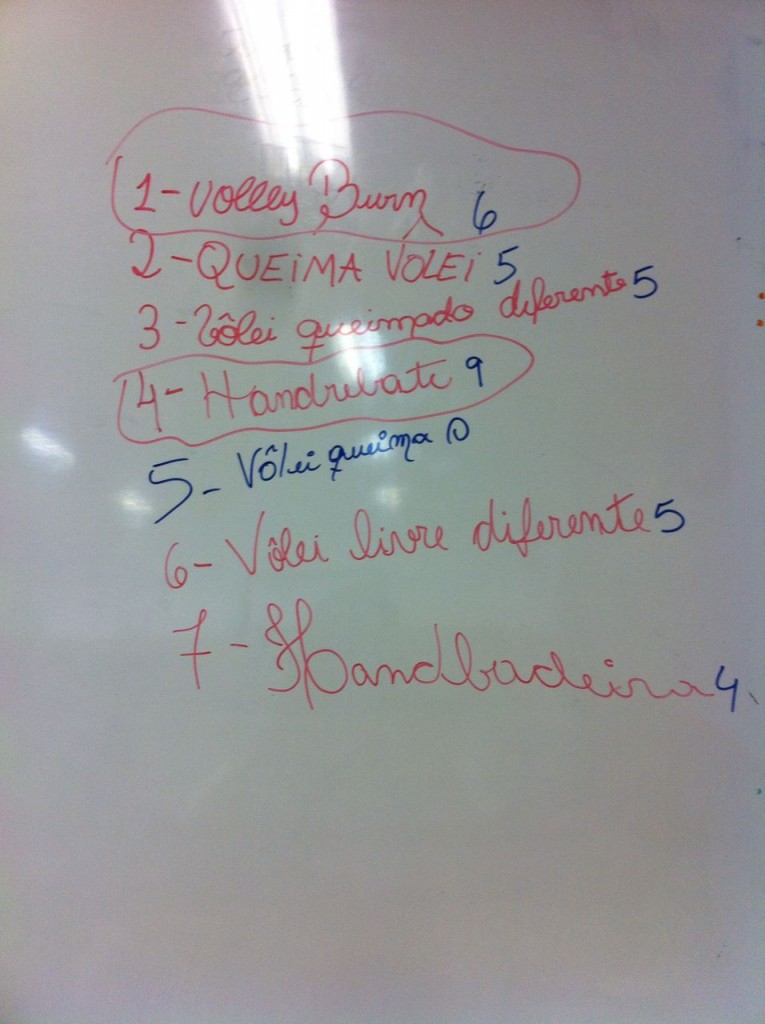 1-Volley Burn 6
2-QUEiMA VOLEi 5
3-Vôlei queimado diferente 5
4-Handrebate 9
5-Vôlei queima 0
6-Vôlei livre diferente 5
7-Handbadeira 4